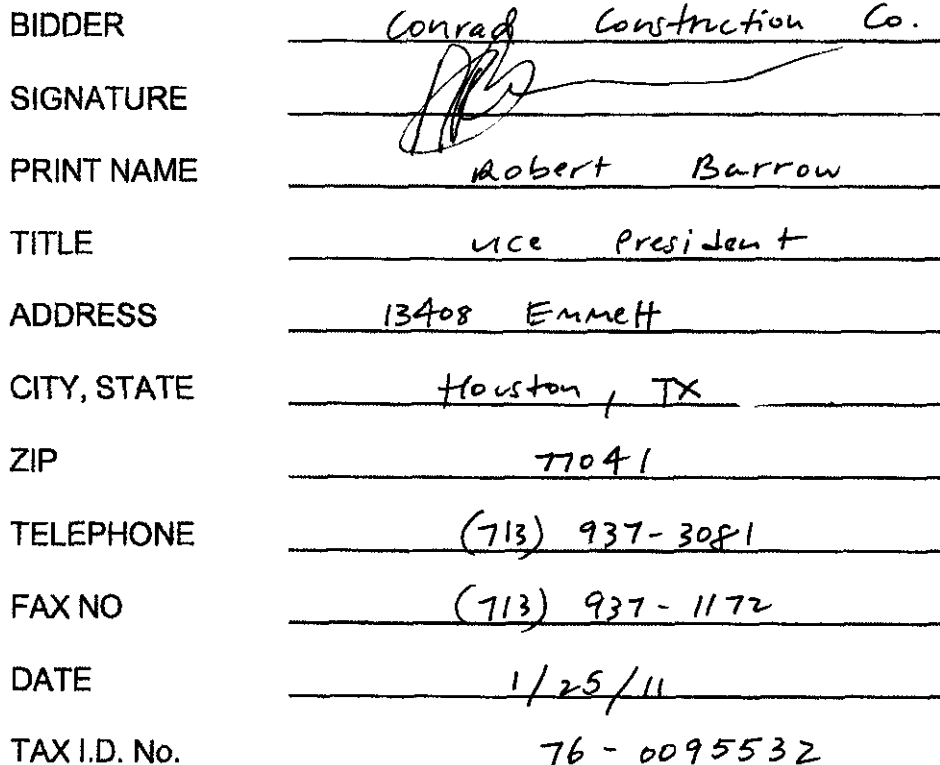 BIDDER Conrad Construction Co.
SIGNATURE
PRINT NAME Robert Barrow
TITLE Vice President
ADDRESS 13408 Emmett
CITY, STATE Houston, TX
ZIP 77041
TELEPHONE (713) 937-3081
FAX NO (713) 937-1172
DATE 1/25/11
TAX I.D. No. 76-0095532